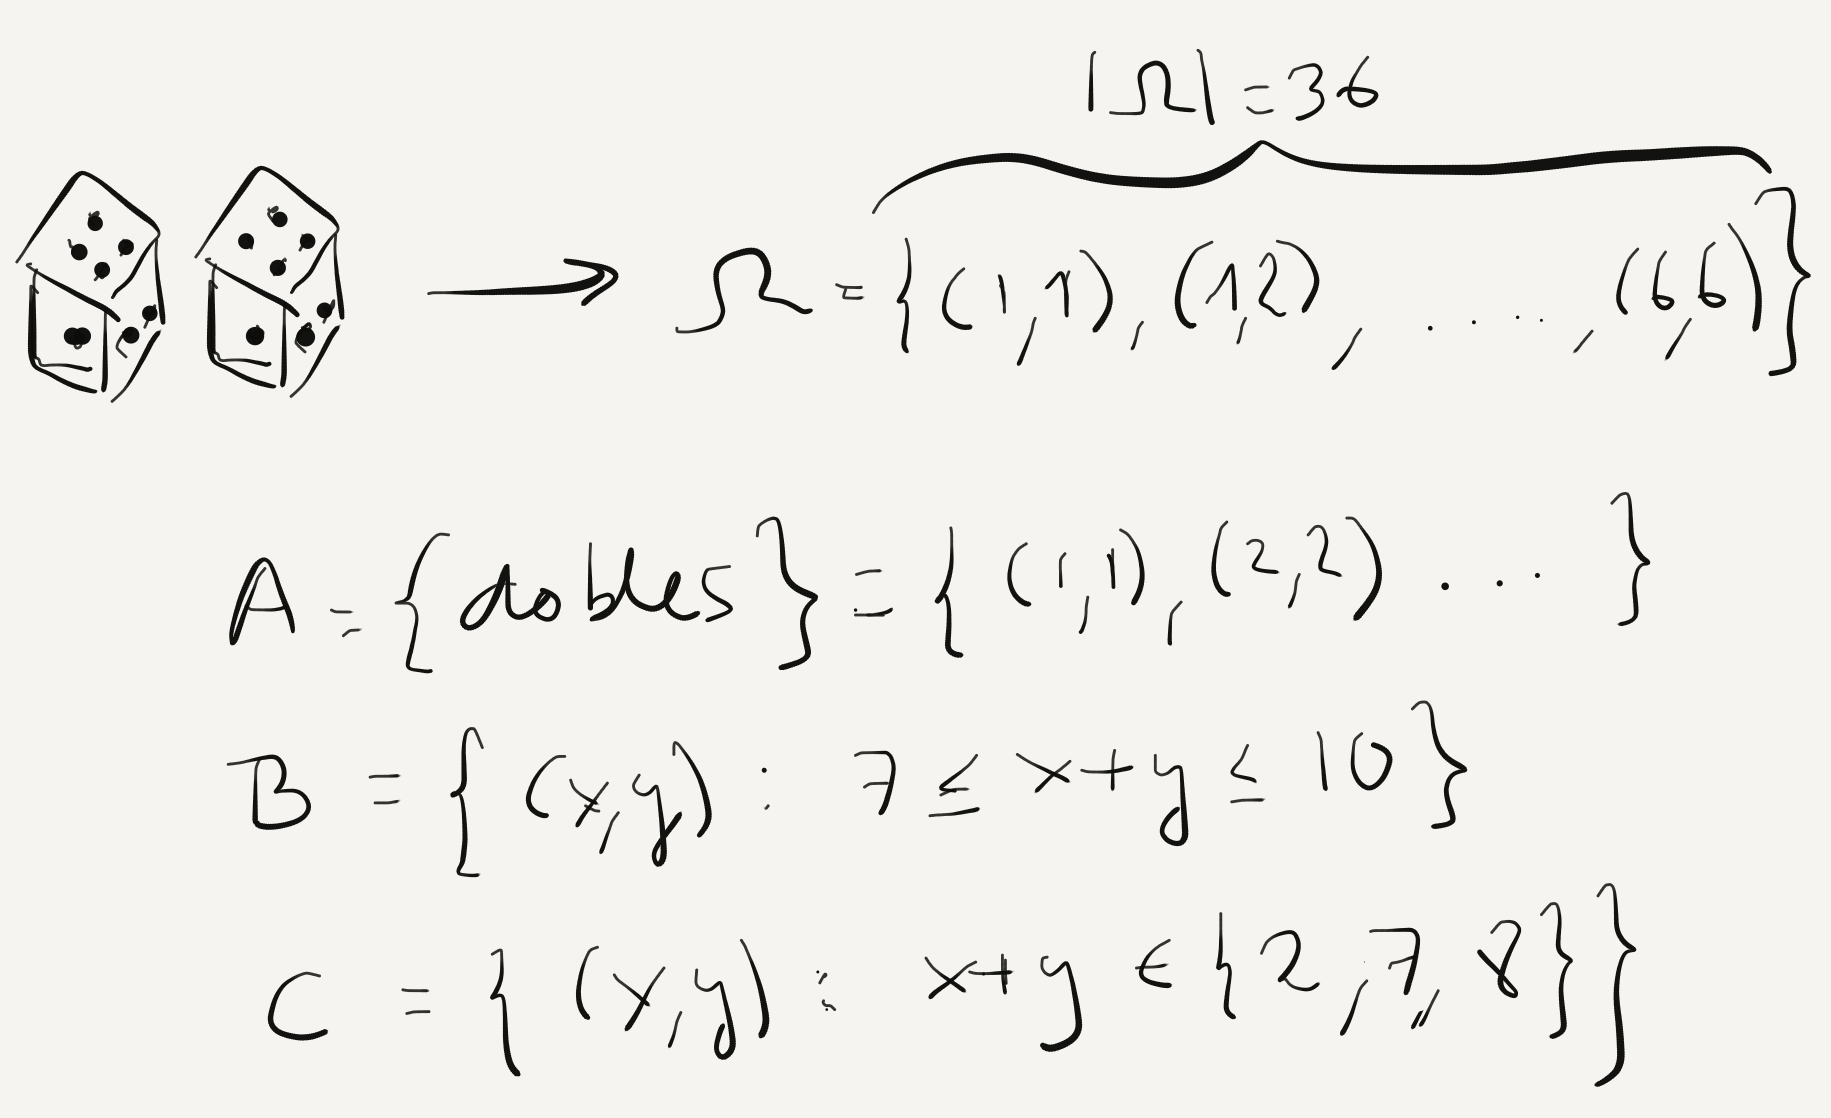 |Ω| = 36
Ω = {(1,1), (1,2), . . . . , (6,6)}
A = {dobles} = {(1,1), (2,2) . . . }
B = {(x,y) : 7 ≤ x+y ≤ 10}
C = {(x,y) : x+y ∈ {2,7,8}}